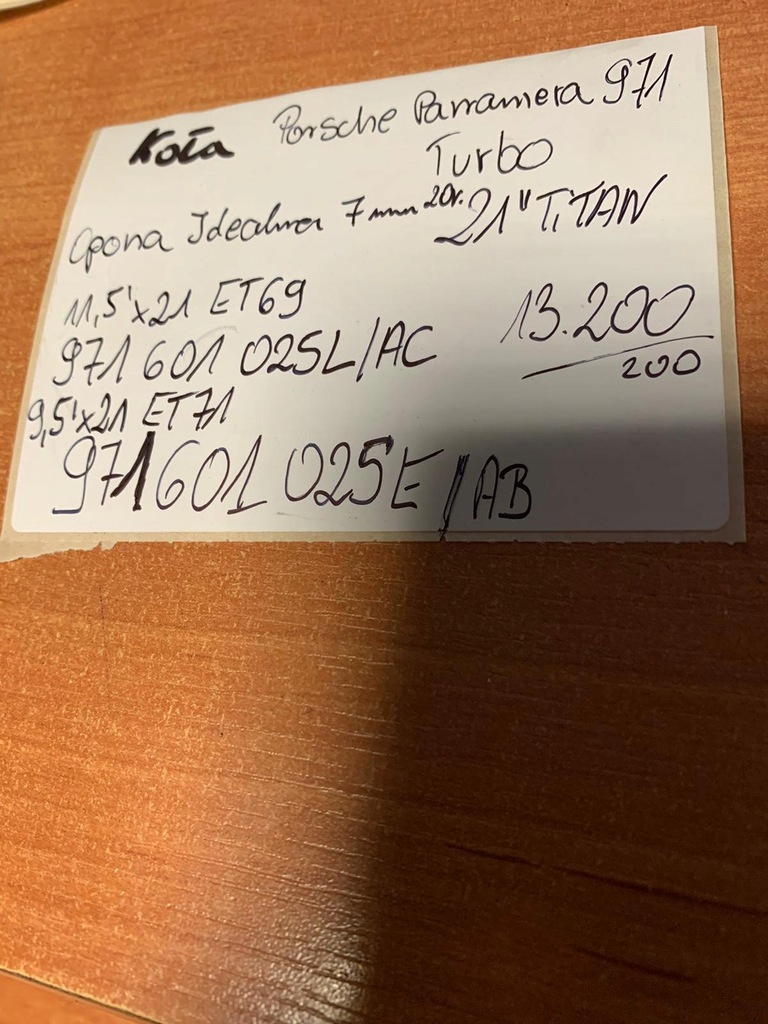 Koła Porsche Parramera 971
Turbo
Opona Idealna 7mm 20r. 21" TiTAN
11,5'x21 ET69
13.200
971 601 025L/AC
200
9,5'x21 ET71
971601 025E/AB